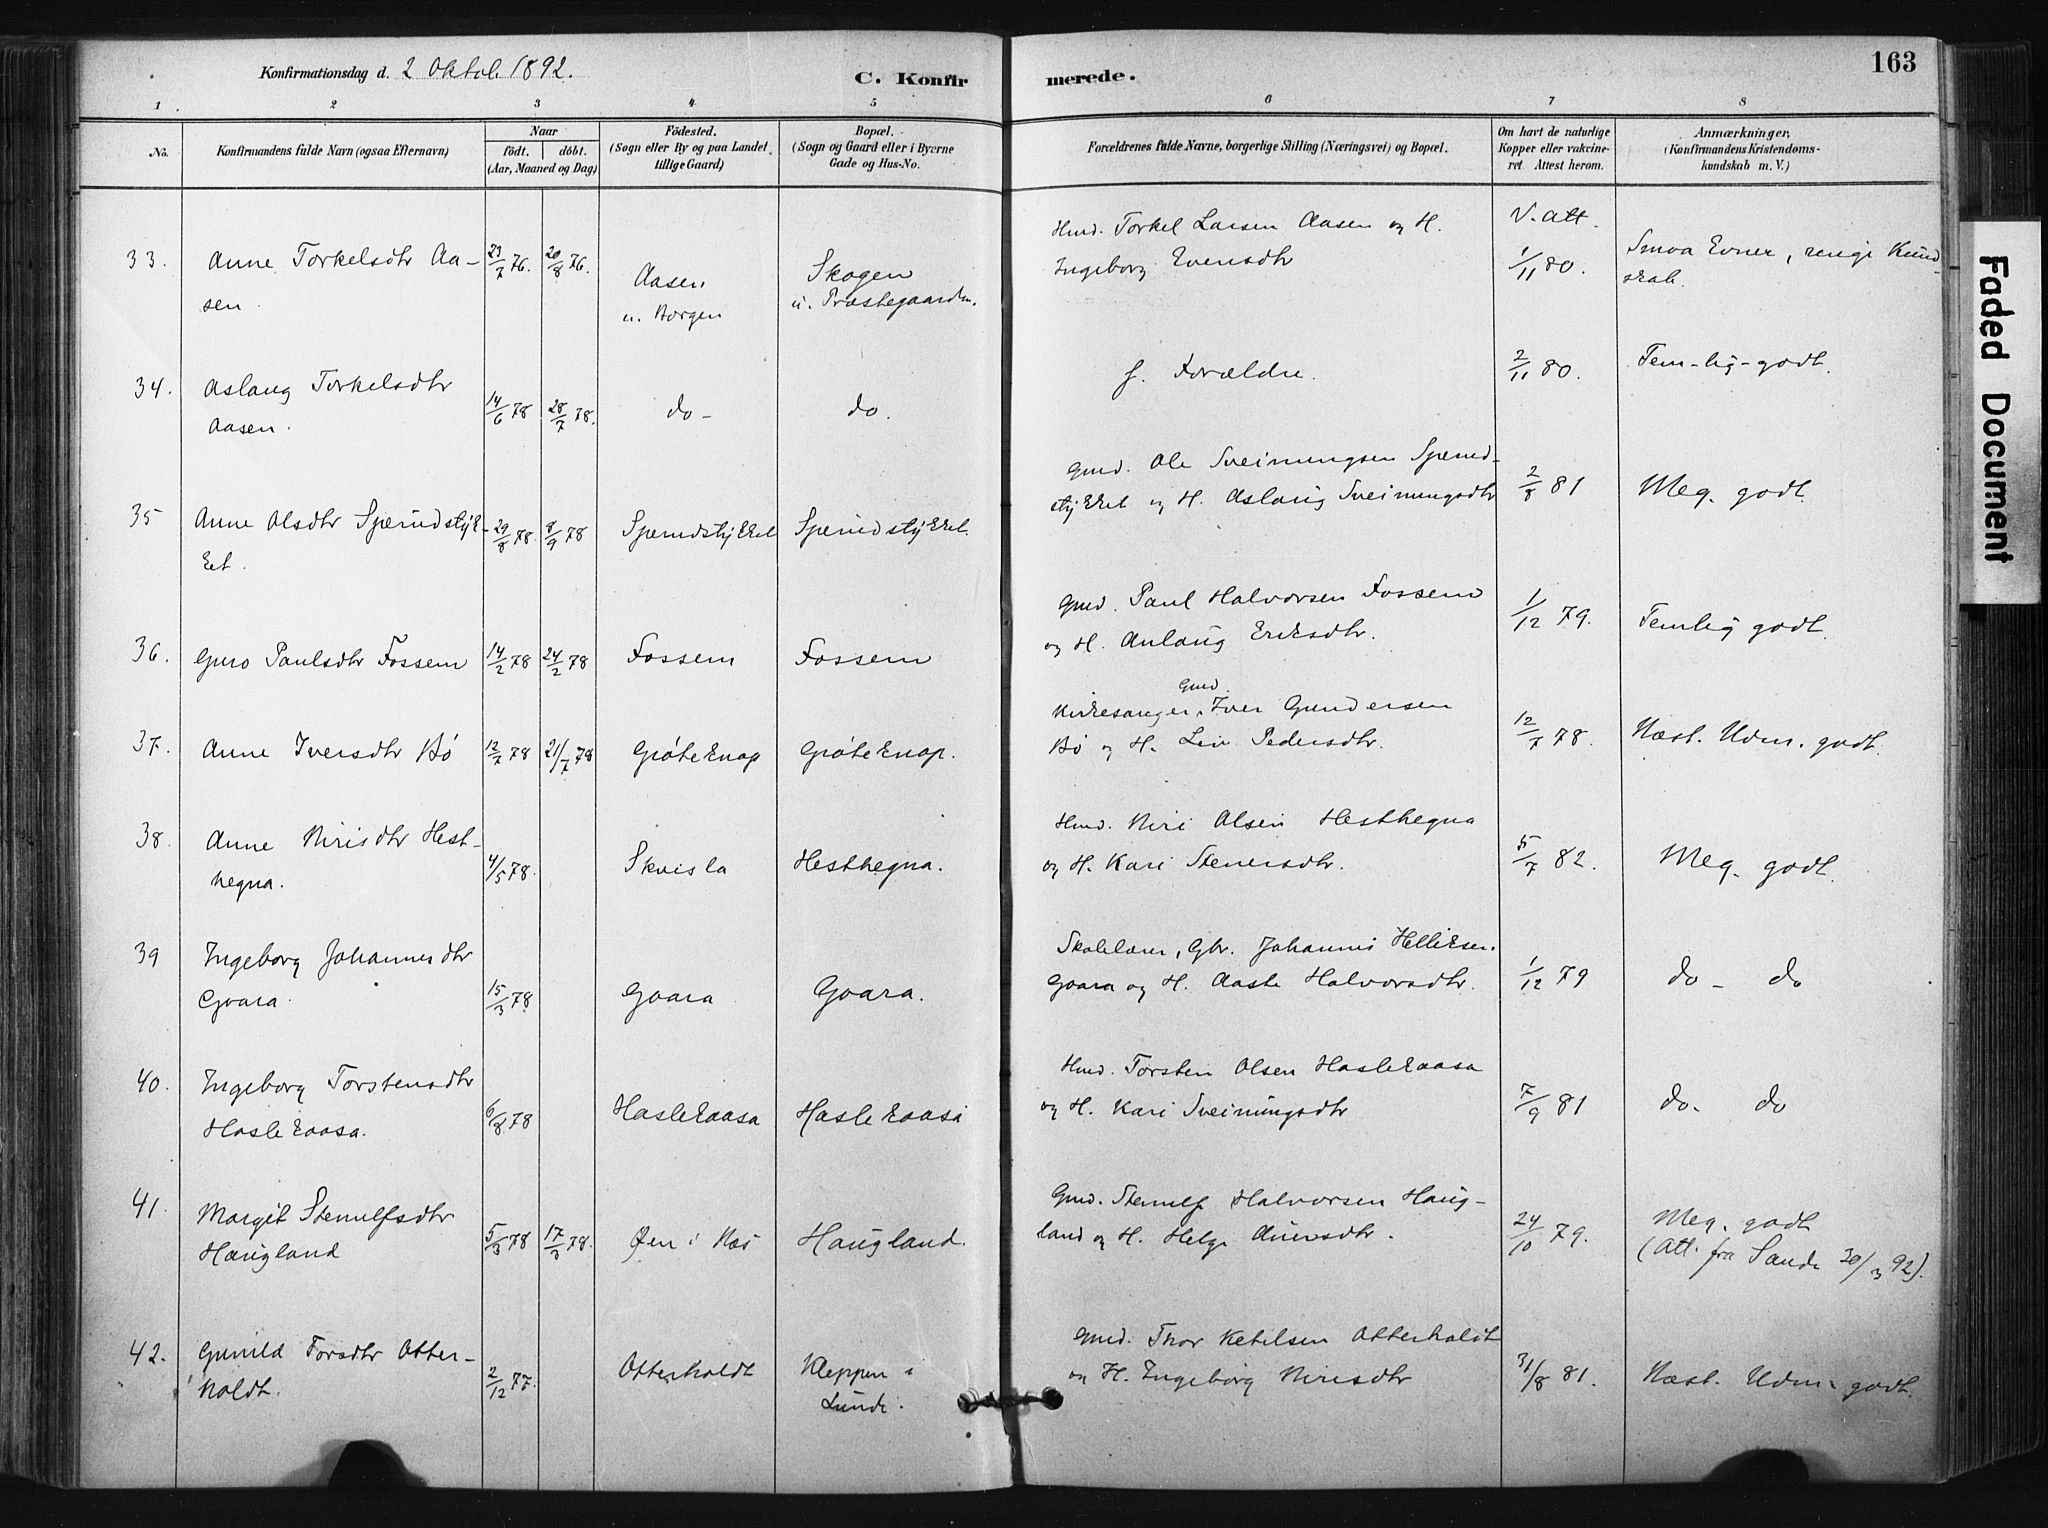 Konfirmationsdag d. 2 Oktob. 1892.
C. Konfir
merede.
163
1
2
3
4
5
6
7
8
No.
Konfirmandens fulde Navn (ogsaa Efternavn)
Naar
födt.
döbt.
(Aar, Maaned og Dag)
Födested.
(Sogn eller By og paa Landet
tillige Gaard)
Bopæl.
(Sogn og Gaard eller i Byerne
Gade og Hus-No.
Forældrenes fulde Navne, borgerlige Stilling (Næringsvei) og Bopæl.
Om havt de naturlige
Kopper eller vakcine-
ret. Attest herom.
Anmærkninger,
(Konfirmandens Kristendoms-
kundskab m. V.)
33.
Anne Torkelsdtr Aa-
sen
23/7 76.
20/8 76.
Aasen
u. Borgen
Skogen
u. Præstegaarden.
Hmd. Torkel Larsen Aasen og H.
Ingeborg Evensdtr
V. att.
1/11 80.
Smaa Evner, ringe Kund-
skab.
34.
Aslaug Torkelsdtr
Aasen.
14/6 78
28/7 78.
do -
do.
f. Forældre.
2/11 80.
Tem-lig-godt.
35
Anne Olsdtr Spærudstyk-
ket.
29/8 78.
8/9 78
Spærudstykket
Spærudstykket.
Gmd. Ole Sveinungsen Spærud-
stykket og H. Aslaug Sveinungsdtr
2/8 81
Meg. godt.
36.
Guro Paulsdtr Fossem
14/2 78
24/2 78
Fossem
Fossem
Gmd. Paul Halvorsen Fossem
og H. Anlaug Eriksdtr.
1/12 79.
Temlig godt.
37.
Anne Iversdtr Bö
12/7 78
21/7 78
Gröteknap
Gröteknap.
Gmd.
Kirkesanger, Iver Gundersen
Bö og H. Liv Pedersdtr.
12/7 78.
Næst. Udm. godt.
38.
Anne Nirisdtr Hest-
hegna.
4/5 78.
Skvisla
Hesthegna.
Hmd. Niri Olsen Hesthegna
og H. Kari Stenersdtr.
5/7 82.
Meg. godt.
39
Ingeborg Johannesdtr
Gvara.
15/3 78
Gvara
Gvara.
Skolelærer, Gbr. Johannes Helliksen
Gvara og H. Aaste Halvorsdtr.
1/12 79
do - do
40.
Ingeborg Torstensdtr
Haslekaasa.
6/8 78
Haslekaasa
Haslekaasa
Hmd. Torsten Olsen Haslekaasa
og H. Kari Sveinungsdtr
7/9 81
do. do
41.
Margit Stenulfsdtr
Haugland
5/3 78
17/3 78.
Øen i Næs
Haugland.
Gmd. Stenulf Halvorsen Haug-
land og H. Helge
24/10 79.
Meg. godt
(Att. fra Sande 30/3 92).
42.
Gunild Torsdtr Otter-
holdt.
2/12 77.
Otterholdt
Kleppen i
Lunde.
Gmd. Thor Ketilsen Otterholdt
og H. Ingeborg Nirisdtr
31/8 81.
Næst. Udm. godt.
Faded Document